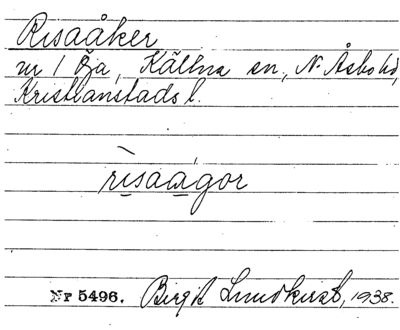 Risaåker
nr 1 Öja, Källna sn, N. Åsbo hd,
Kristianstads l.
rìsaagor
Nr 5496. Birgit Lundkvist, 1938.